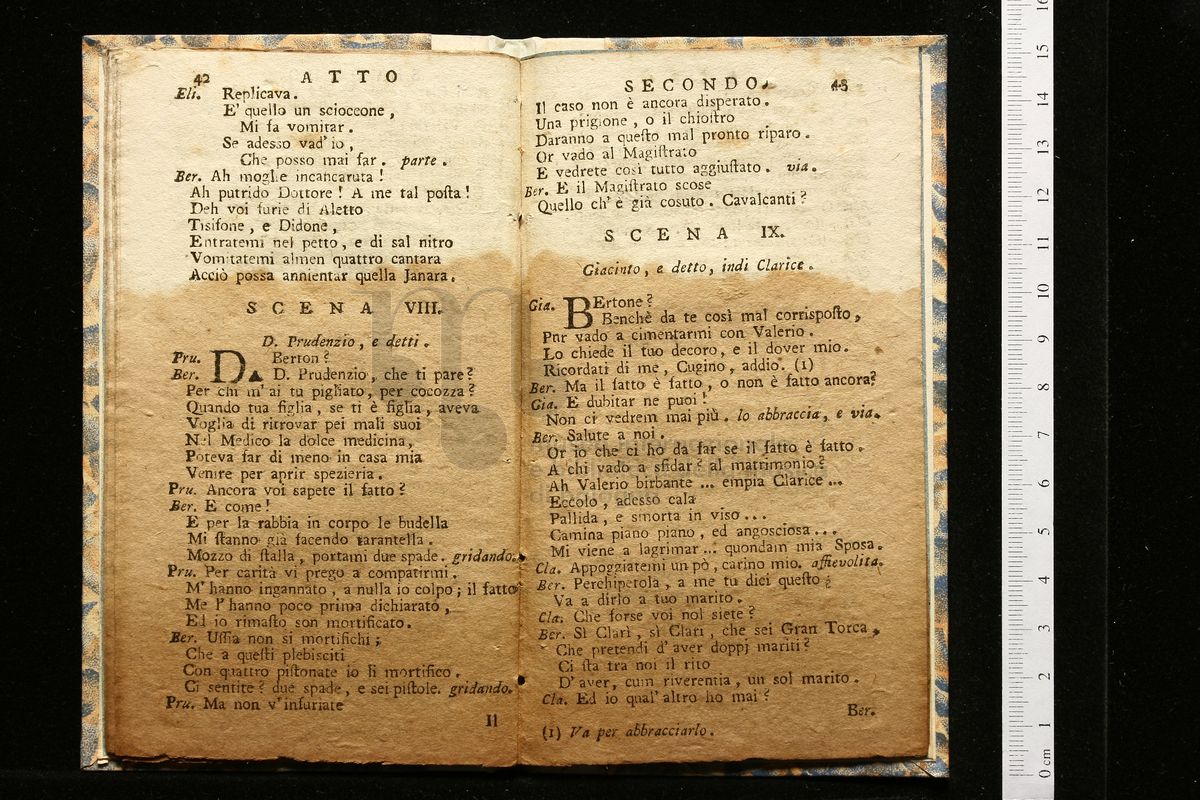 42 ATTO
Eli. Replicava.
E' quello un scioccone,
Mi fa vomitar.
Se adesso vad' io,
Che posso mai far. parte.
Ber. Ah moglie incancaruta!
Ah putrido Dottore! A me tal posta!
Deh voi furie di Aletto
Tisifone, e Didone,
Entratemi nel petto, e di sal nitro
Vomitatemi almen quattro cantara
Acciò possa annientar quella Janara.
SCENA VIII.
D. Prudenzio, e detti.
Pru. Berton?
Ber. DA D. Prudenzio, che ti pare?
Per chi m' ai tu pigliato, per cocozza?
Quando tua figlia, se ti è figlia, aveva
Voglia di ritrovar pei mali suoi
Nel Medico la dolce medicina,
Poteva far di meno in casa mia
Venire per aprir spezieria.
Pru. Ancora voi sapete il fatto?
Ber. E come!
E per la rabbia in corpo le budella
Mi stanno già facendo tarantella.
Mozzo di stalla, portami due spade. gridando.
Pru. Per carità vi prego a compatirmi.
M' hanno ingannato, a nulla io colpo; il fatto
Me l' hanno poco prima dichiarato,
Ed io rimasto son mortificato.
Ber. Ussia non si mortifichi;
Che a questi plebisciti
Con quattro pistonate io li mortifico.
Ci sentite? due spade, e sei pistole. gridando.
Pru. Ma non v' infuriate
Il
SECONDO. 43
Il caso non è ancora disperato.
Una prigione, o il chiostro
Daranno a questo mal pronto riparo.
Or vado al Magistrato
E vedrete così tutto aggiustato. via.
Ber. E il Magistrato scose
Quello ch' è già cosuto. Cavalcanti?
SCENA IX.
Giacinto, e detto, indi Clarice.
Gia. BErtone?
Benchè da te così mal corrisposto,
Pur vado a cimentarmi con Valerio.
Lo chiede il tuo decoro, e il dover mio.
Ricordati di me, Cugino, addio. (1)
Ber. Ma il fatto è fatto, o non è fatto ancora?
Gia. E dubitar ne puoi!
Non ci vedrem mai più. lo abbraccia, e via.
Ber. Salute a noi.
Or io che ci ho da far se il fatto è fatto.
A chi vado a sfidar? al matrimonio?
Ah Valerio birbante ... empia Clarice ...
Eccolo, adesso cala
Pallida, e smorta in viso ...
Camina piano piano, ed angosciosa ...
Mi viene a lagrimar ... quondam mia Sposa.
Cla. Appoggiatemi un pò, carino mio. affievolita.
Ber. Perchipetola, a me tu dici questo;
Va a dirlo a tuo marito.
Cla. Che forse voi nol siete?
Ber. Sì Clarì, sì Clarì, che sei Gran Torca,
Che pretendi d' aver doppj mariti?
Ci sta tra noi il rito
D' aver, cum riverentia, un sol marito.
Cla. Ed io qual' altro ho mai?
Ber.
(1) Va per abbracciarlo.
0 cm 1 2 3 4 5 6 7 8 9 10 11 12 13 14 15 16